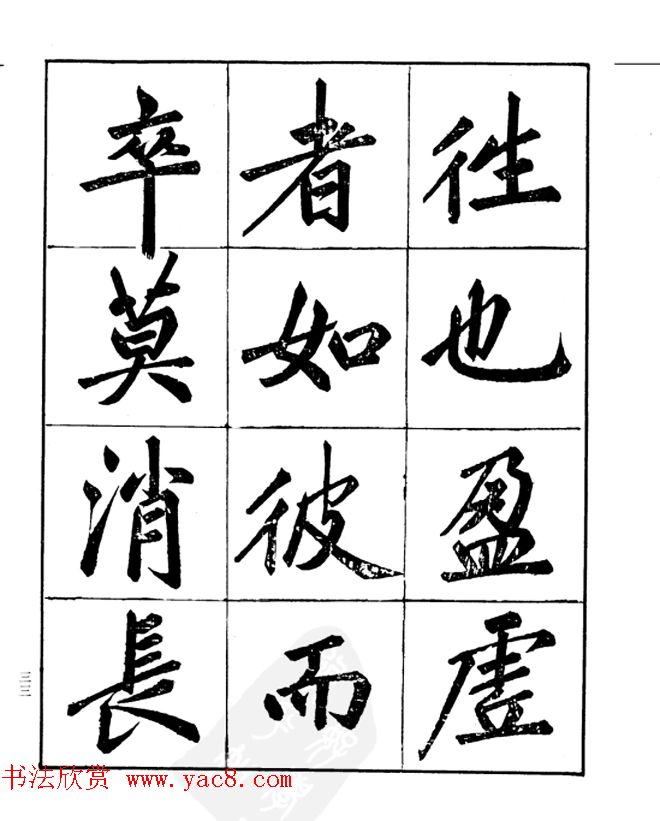 往也盈虚
者如彼而
卒莫消長
三三
书法欣赏 www.yac8.com